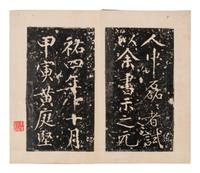 人中磊〻者試
以余書示之元
祐四年十月
甲寅黃庭堅